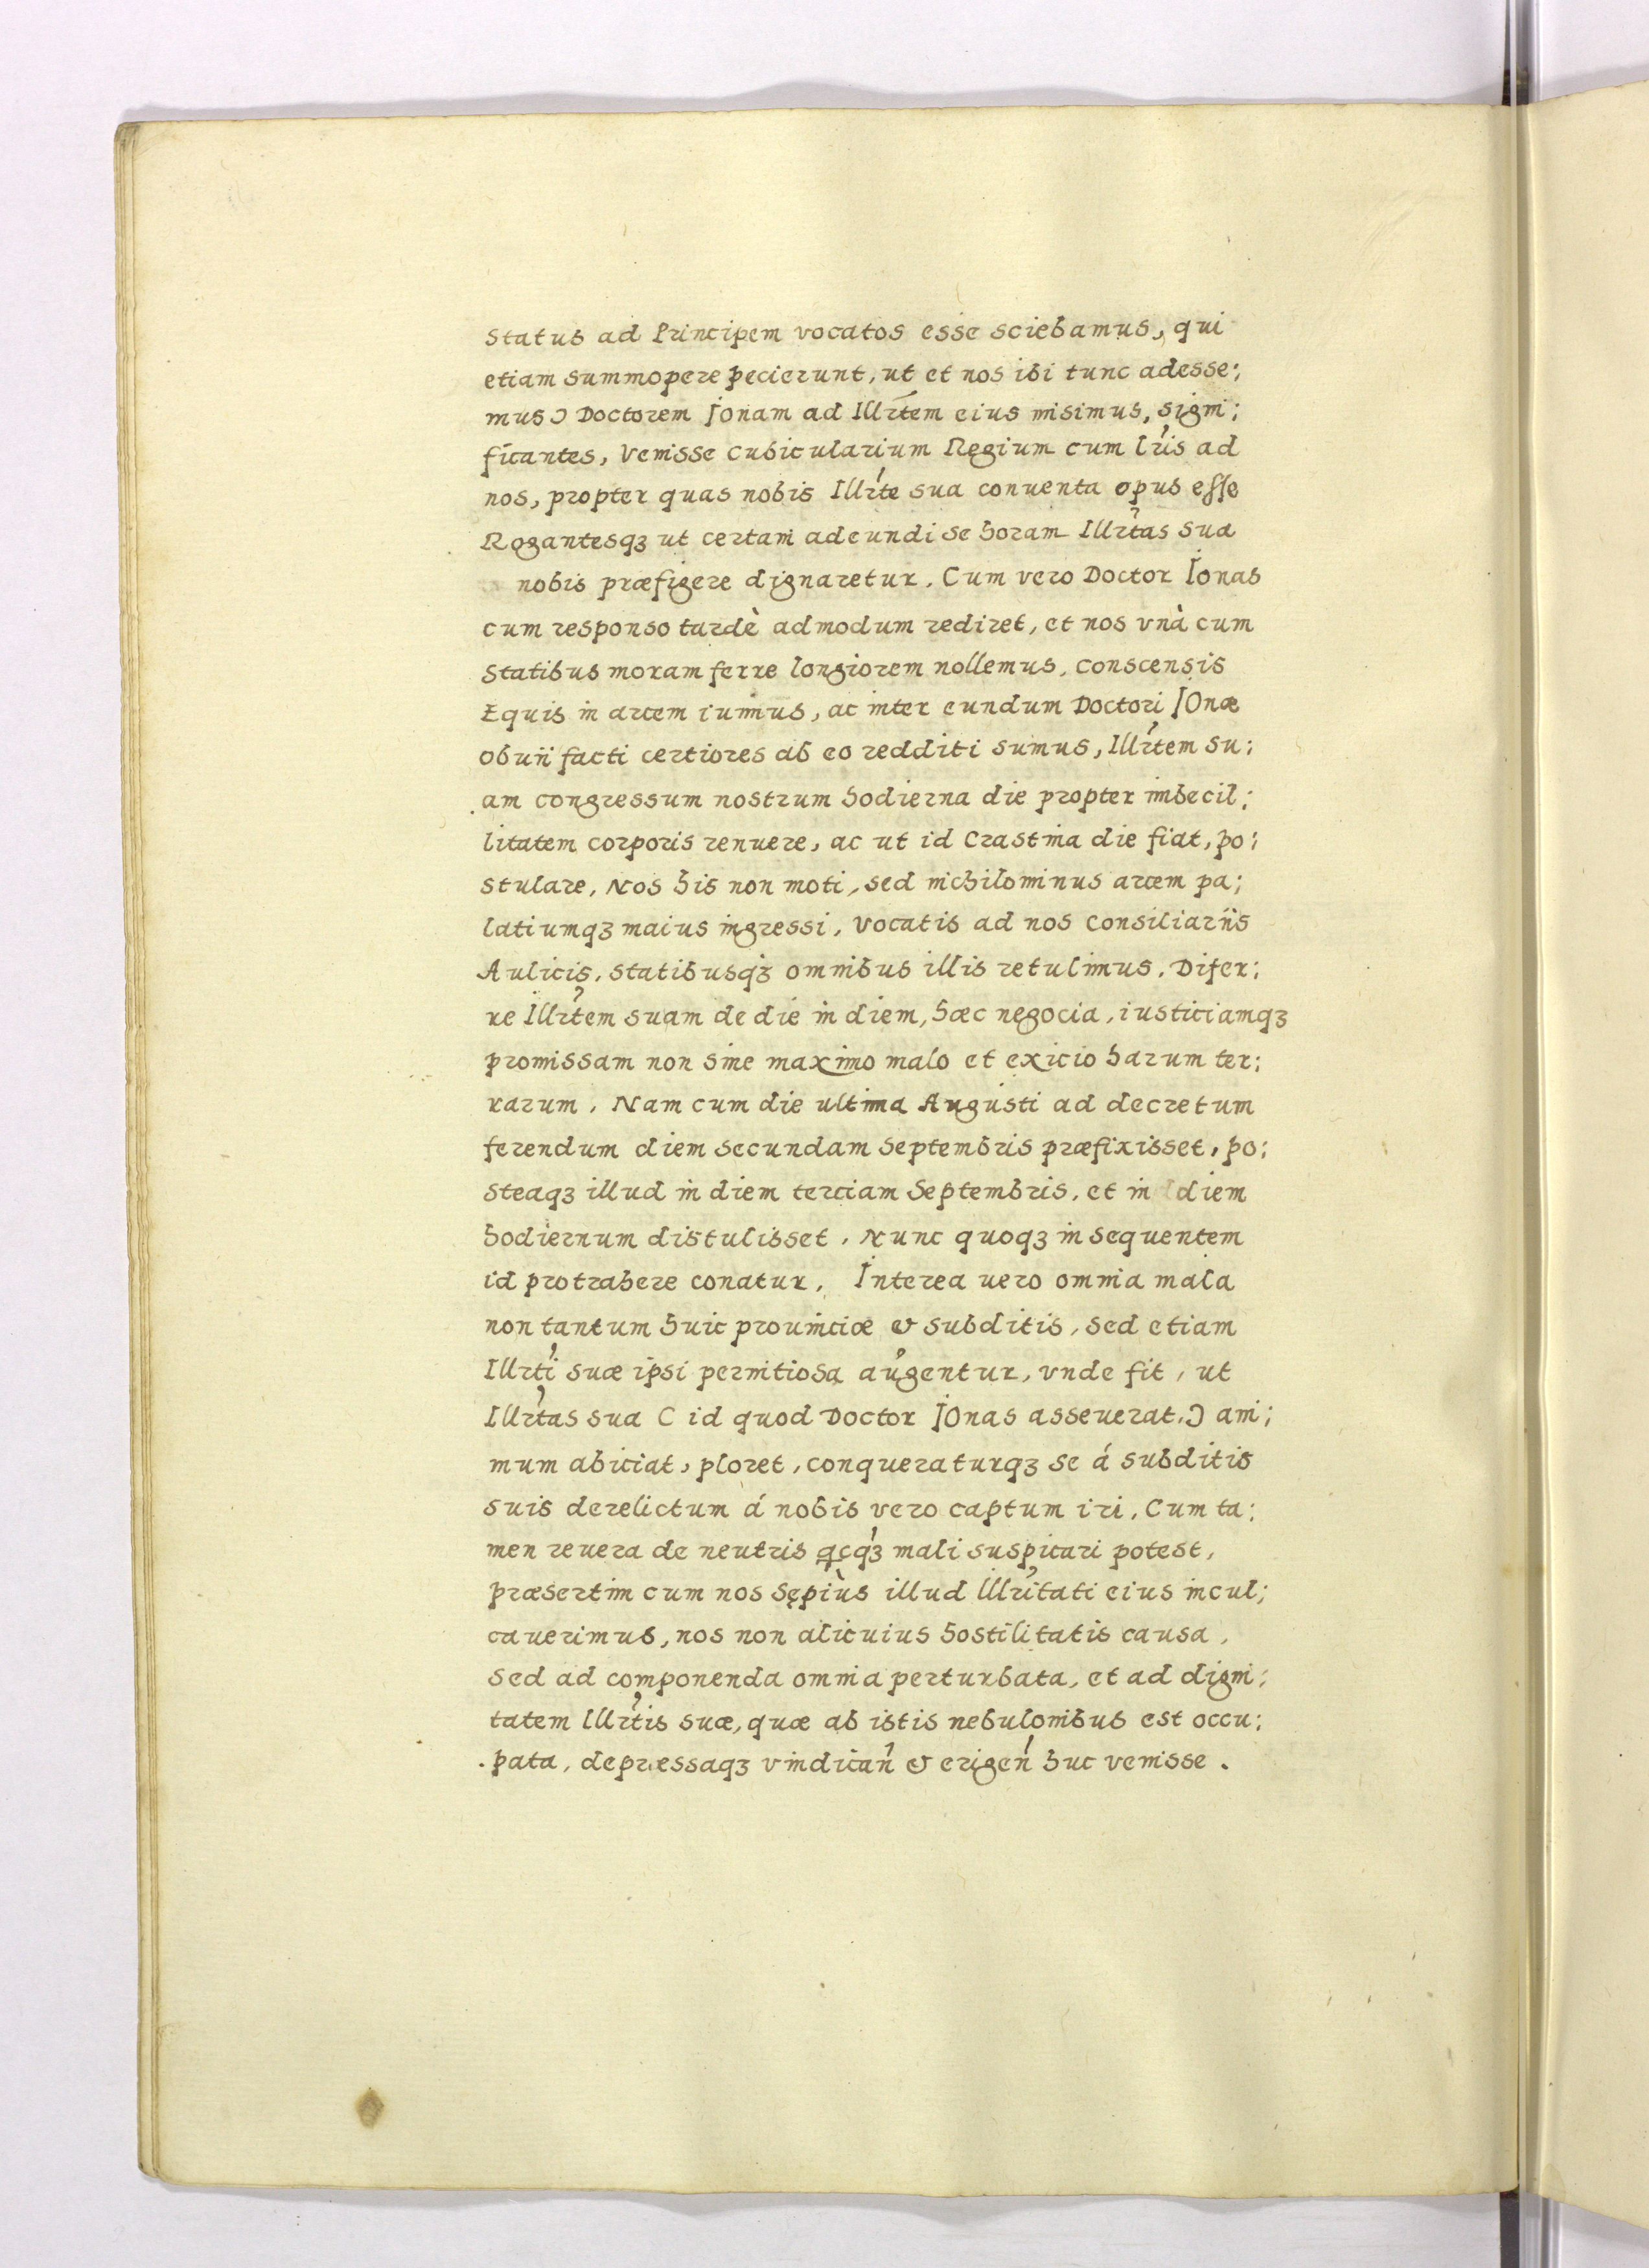 status ad Principem vocatos esse sciebamus, qui
etiam summopere pecierunt, ut et nos ibi tunc adesse:
mus) Doctorem Jonam ad Illrtem eius misimus, signi:
ficantes, Venisse Cubicularium Regium cum lris ad
nos, propter quas nobis Illrte sua conuenta opus esse
Rogantesqꝫ ut certam adeundi se horam Illrtas sua
nobis præfigere dignaretur. Cum vero Doctor Jonas
cum responso tardè admodum rediret, et nos vnà cum
statibus moram ferre longiorem nollemus, conscensis
Equis in arcem iuimus, ac inter eundum Doctori Jonæ
obuii facti certiores ab eo redditi sumus, Illrtem su:
am congressum nostrum hodierna die propter imbecil:
litatem corporis renuere, ac ut id Crastina die fiat, po:
stulare, Nos his non moti, sed nichilominus arcem pa:
latiumqꝫ maius ingressi, vocatis ad nos Consiliariis
Aulicis, statibusqꝫ omnibus illis retulimus. Difer:
re Illrtem suam de die in diem, hæc negocia, iusticiamqꝫ
promissam non sine maximo malo et exicio harum ter:
rarum. Nam cum die ultima Augusti ad decretum
ferendum diem secundam Septembris præfixisset, po:
steaqꝫ illud in diem terciam Septembris, et in diem
hodiernum distulisset. Nunc quoqꝫ in sequentem
id protrahere conatur. Interea uero omnia mala
non tantum huic prouinciæ & subditis, sed etiam
Illrti suæ ipsi pernitiosa augentur, vnde fit, ut
Illrtas sua ( id quod Doctor Jonas asseuerat,) ani:
mum abiciat, ploret, conqueraturqꝫ se á subditis
suis derelictum á nobis vero captum iri, Cum ta:
men reuera de neutris qcqꝫ mali suspicari potest,
præsertim cum nos sępiùs illud Illritati eius incul:
cauerimus, nos non alicuius hostilitatis causa,
sed ad componenda omnia perturbata, et ad digni:
tatem Illrtis suæ, quæ ab istis nebulonibus est occu:
pata, depressaqꝫ vindican̄ & erigen̄ huc venisse.